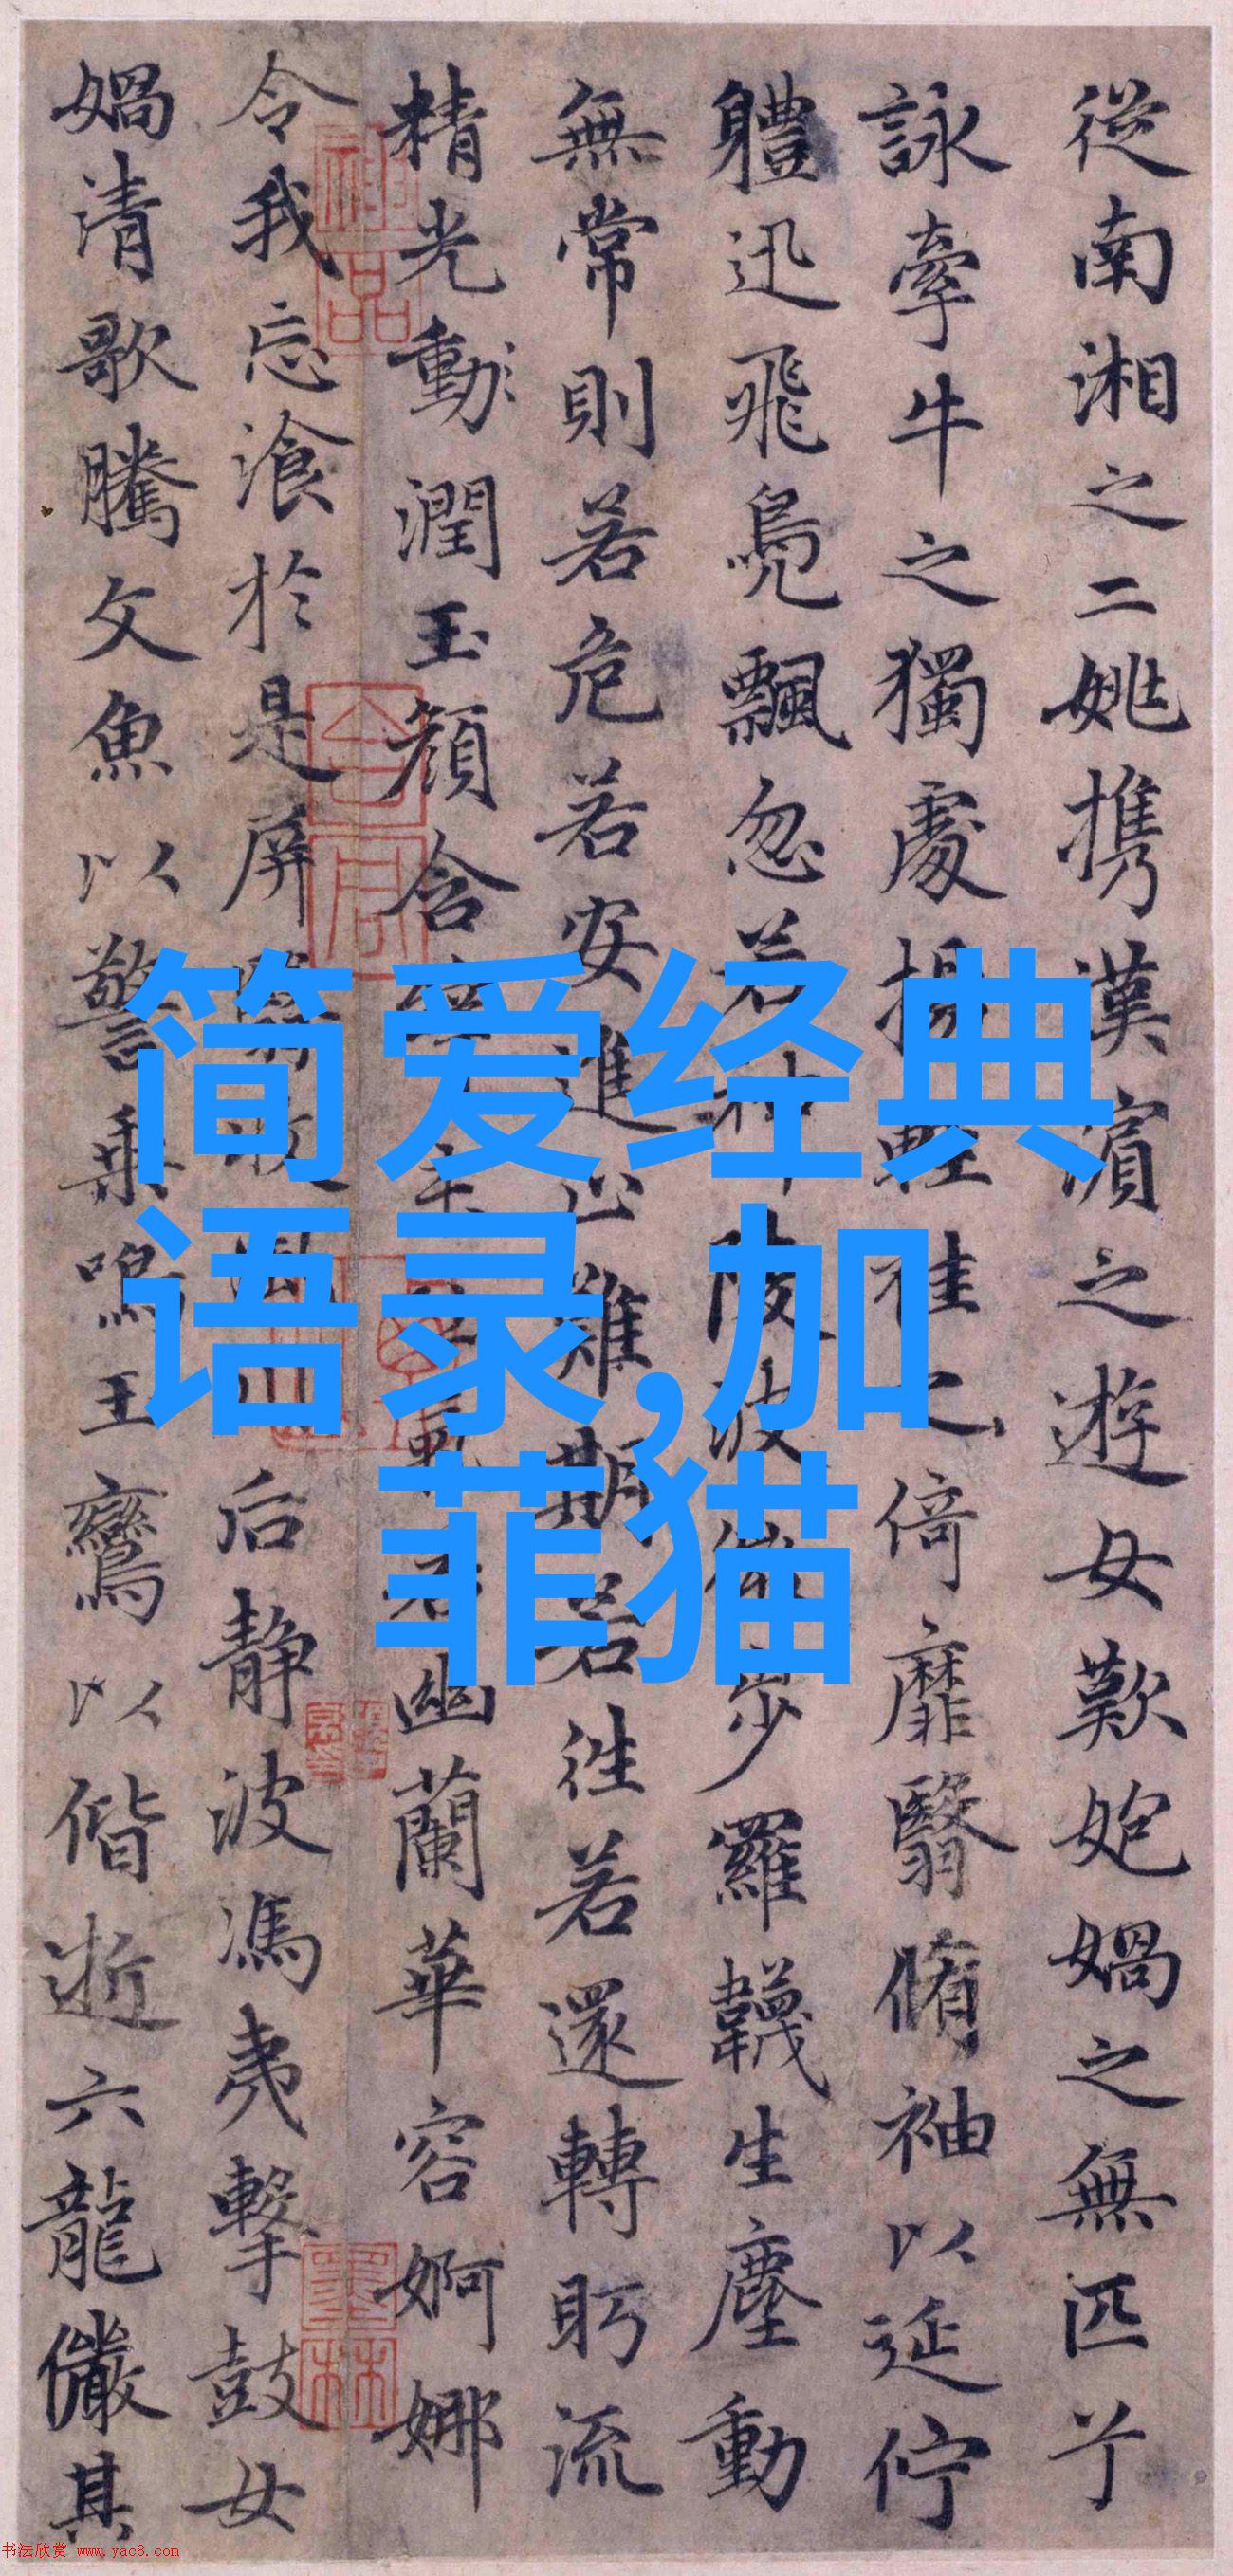 從南湘之二姚携漢濱之遊女歎妑媧之無匹兮
詠牽牛之獨處揚輕袿之倚靡翳脩袖以延佇
軆迅飛鳧飄忽若神陵波微步羅韈生塵動
無常則若危若安進止難期若往若還轉眄流
精光動潤玉顏含辭未吐氣若幽蘭華容婀娜
令我忘飡於是屏翳收風川后靜波馮夷擊鼓女
媧清歌騰文魚以警乗鳴玉鸞以偕逝六龍儼其
简爱经典
语录,加
菲猫
书法欣赏 www.yac8.com